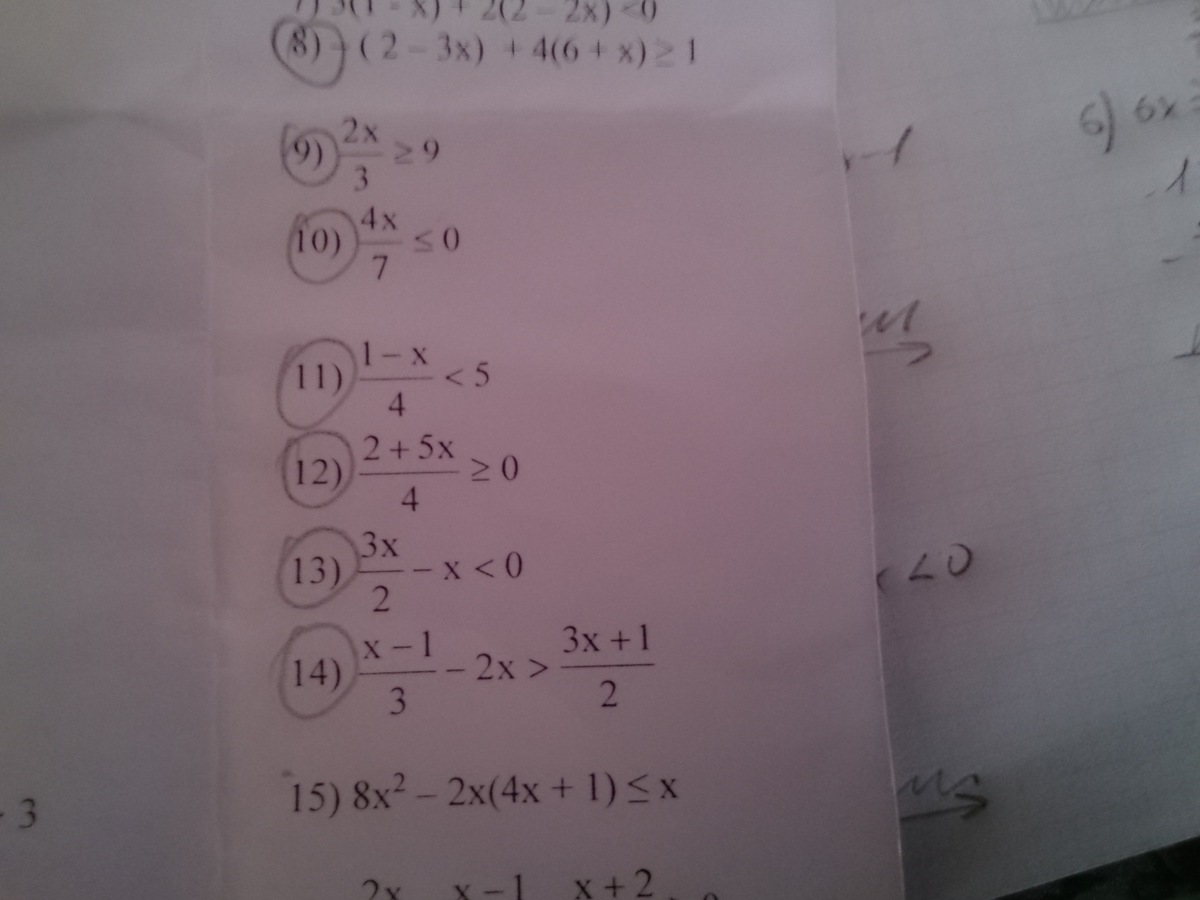 7) 3(1 - x) + 2(2 - 2x) <0
8) - ( 2 - 3x) + 4(6 + x) ≥ 1
9) 2x/3 ≥ 9
10) 4x/7 ≤ 0
11) 1 - x/4 < 5
12) 2 + 5x/4 ≥ 0
13) 3x/2 - x < 0
14) x - 1/3 - 2x > 3x + 1/2
15) 8x² - 2x(4x + 1) ≤ x
2x x - 1 x + 2
- 3
-1
<0
6) 6x